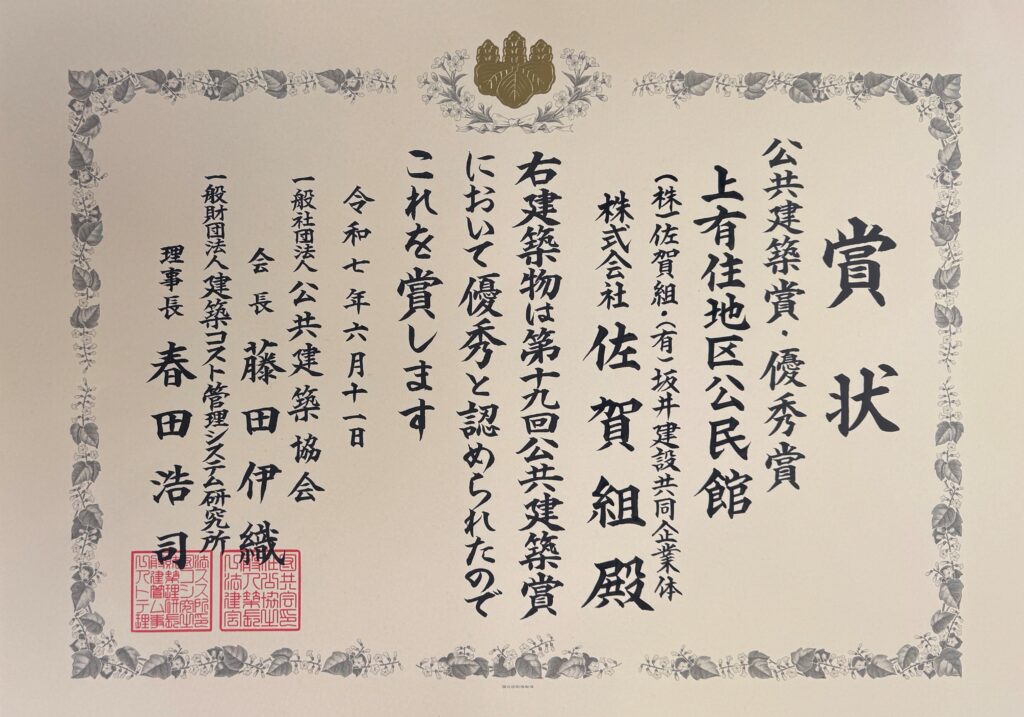 賞状
公共建築賞・優秀賞
上有住地区公民館
(株)佐賀組・(有)坂井建設共同企業体
株式会社 佐賀組殿
右建築物は第十九回公共建築賞
において優秀と認められたので
これを賞します
令和七年六月十一日
一般社団法人公共建築協会
会長 藤田伊織
一般財団法人建築コスト管理システム研究所
理事長 春田浩司